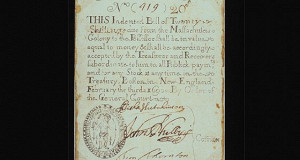 No (919) 20s
THIS Indented Bill of Twenty
Shillings due from the Massachusets
Colony to the Possessor shall be in value
equal to money & shall be accordingly
accepted by the Treasurer and Receivers
Subordinate to him in all Publick paymts
and for any Stock at any time in the
Treasury. Boston in New-England
February the third 1690 By Order of
the General Court
Elisha Hutchinson
John Phillips